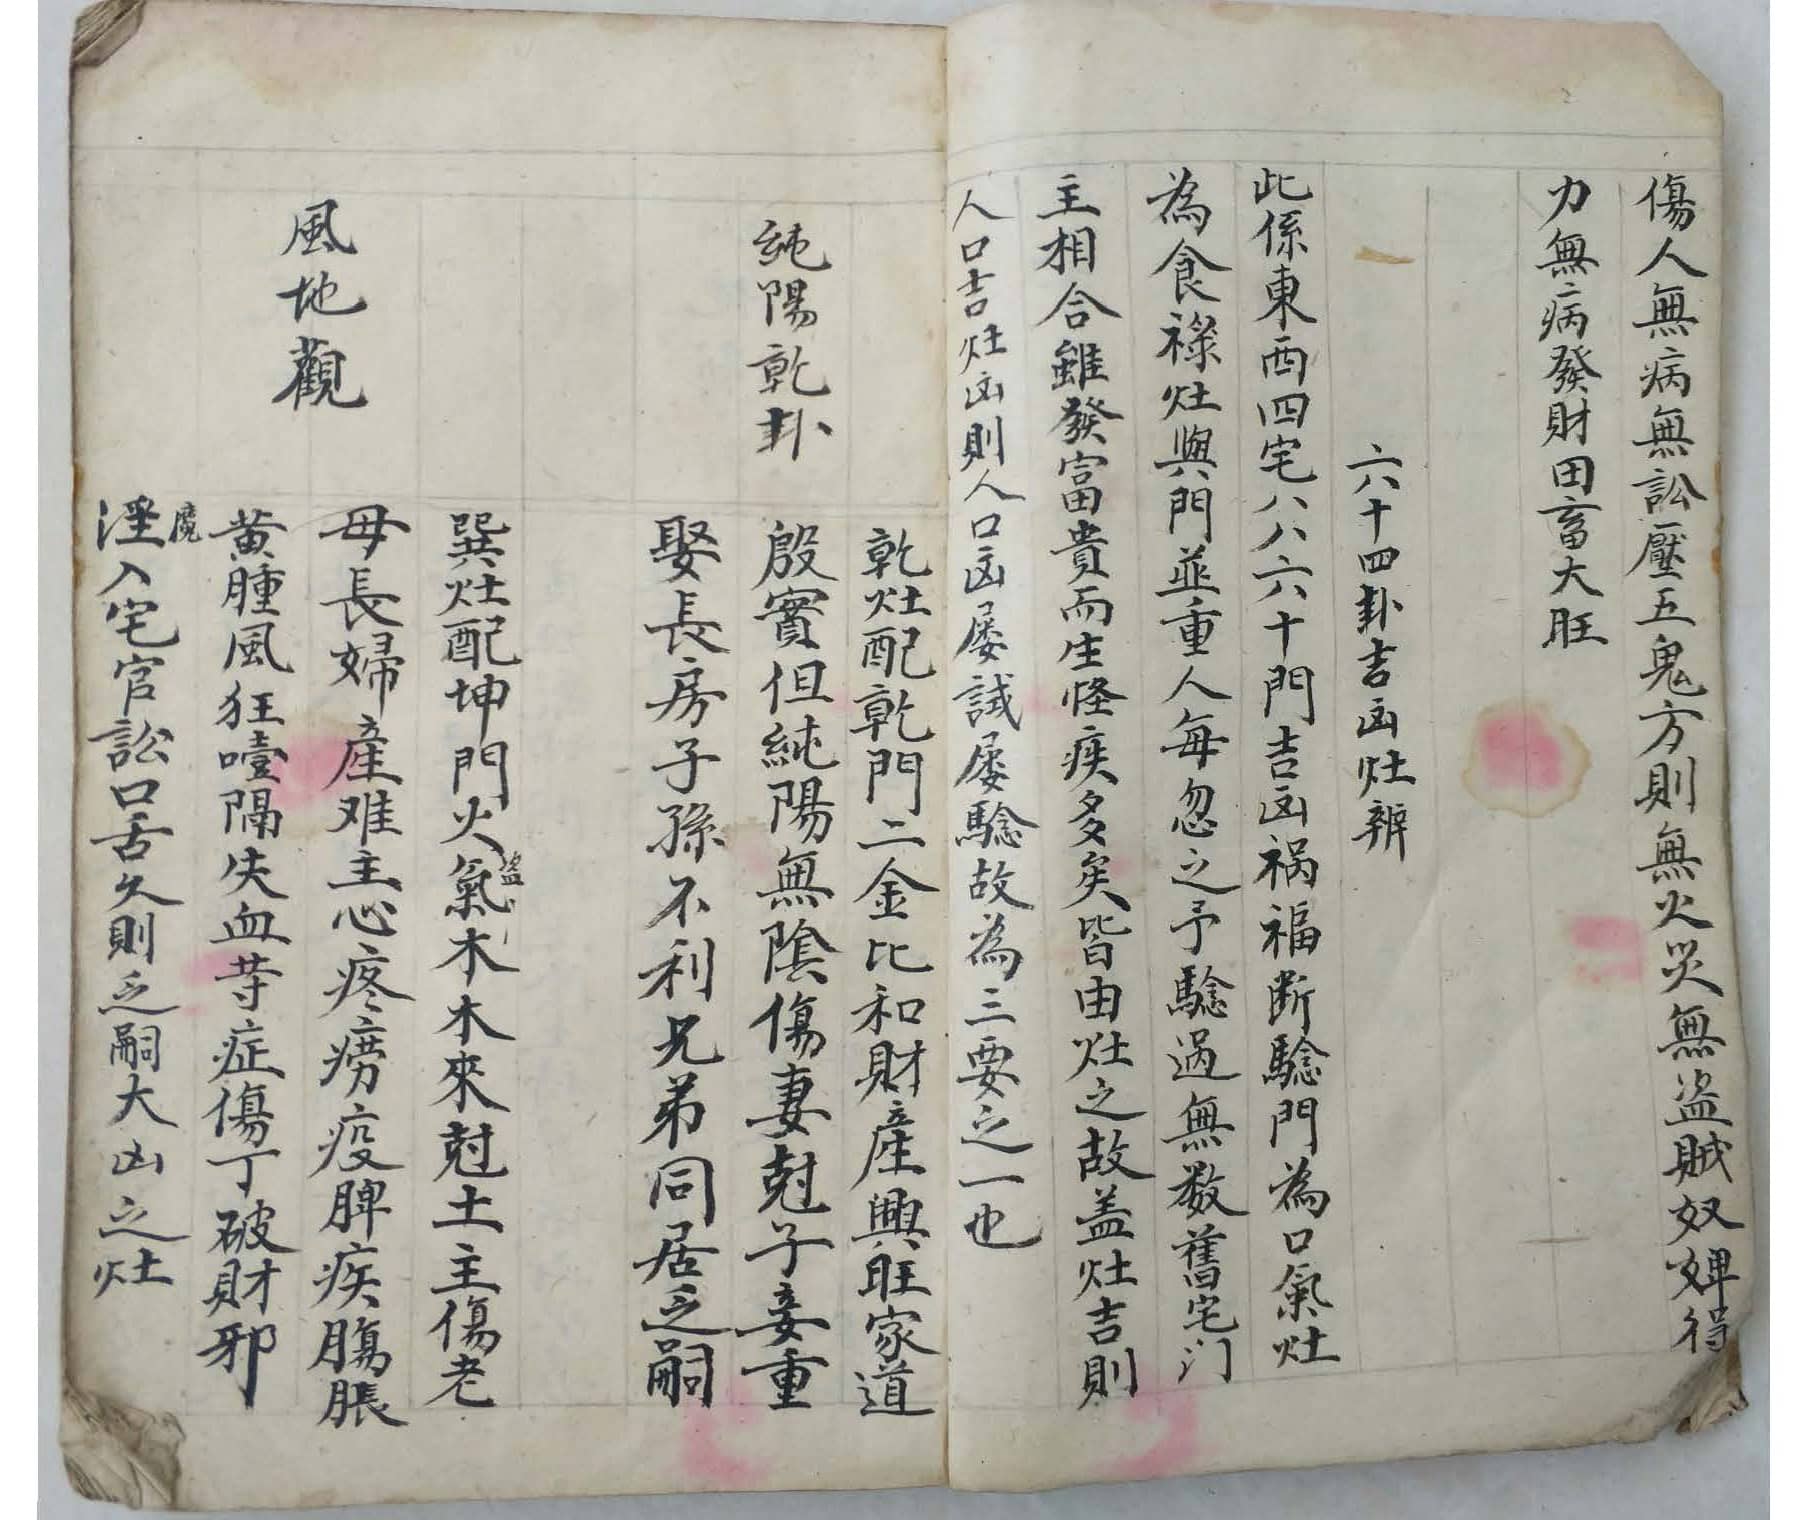 傷人無病無訟壓五鬼方則無火災無盜賊奴婢得
力無病發財田畜大旺
六十四卦吉凶灶辨
此係東西四宅八八六十門吉凶祸福断驗門為口氣灶
為食祿灶與門並重人每忽之予驗過無数舊宅门
主相合雖發富貴而生怪疾多矣皆由灶之故盖灶吉則
人口吉灶凶則人口凶屡試屡驗故為三要之一也
純陽乾卦
乾灶配乾門二金比和財產興旺家道
殷實但純陽無陰傷妻尅子妾重
娶長房子孫不利兄弟同居乏嗣
風地觀
巽灶配坤門火氣盜木木來尅土主傷老
母長婦產难主心疼痨疫脾疾腸脹
黄腫風狂噎隔失血等症傷丁破財邪
魔
淫入宅官訟口舌久則乏嗣大凶之灶